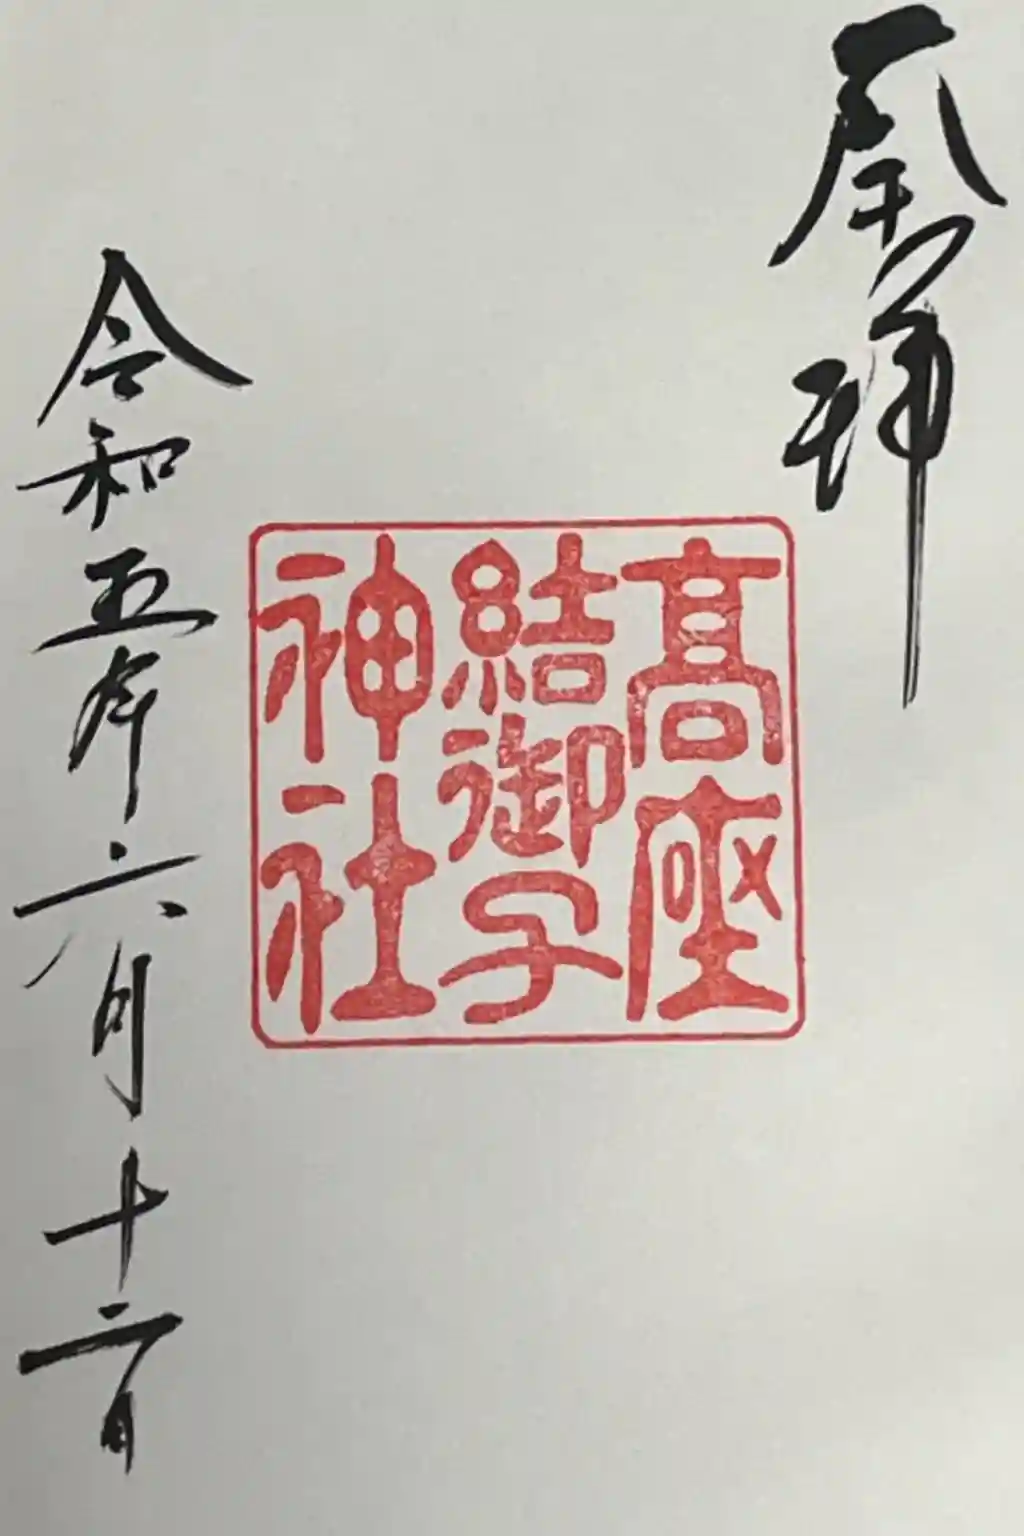 奉拝
髙座
結御子
神社
令和五年六月十二日